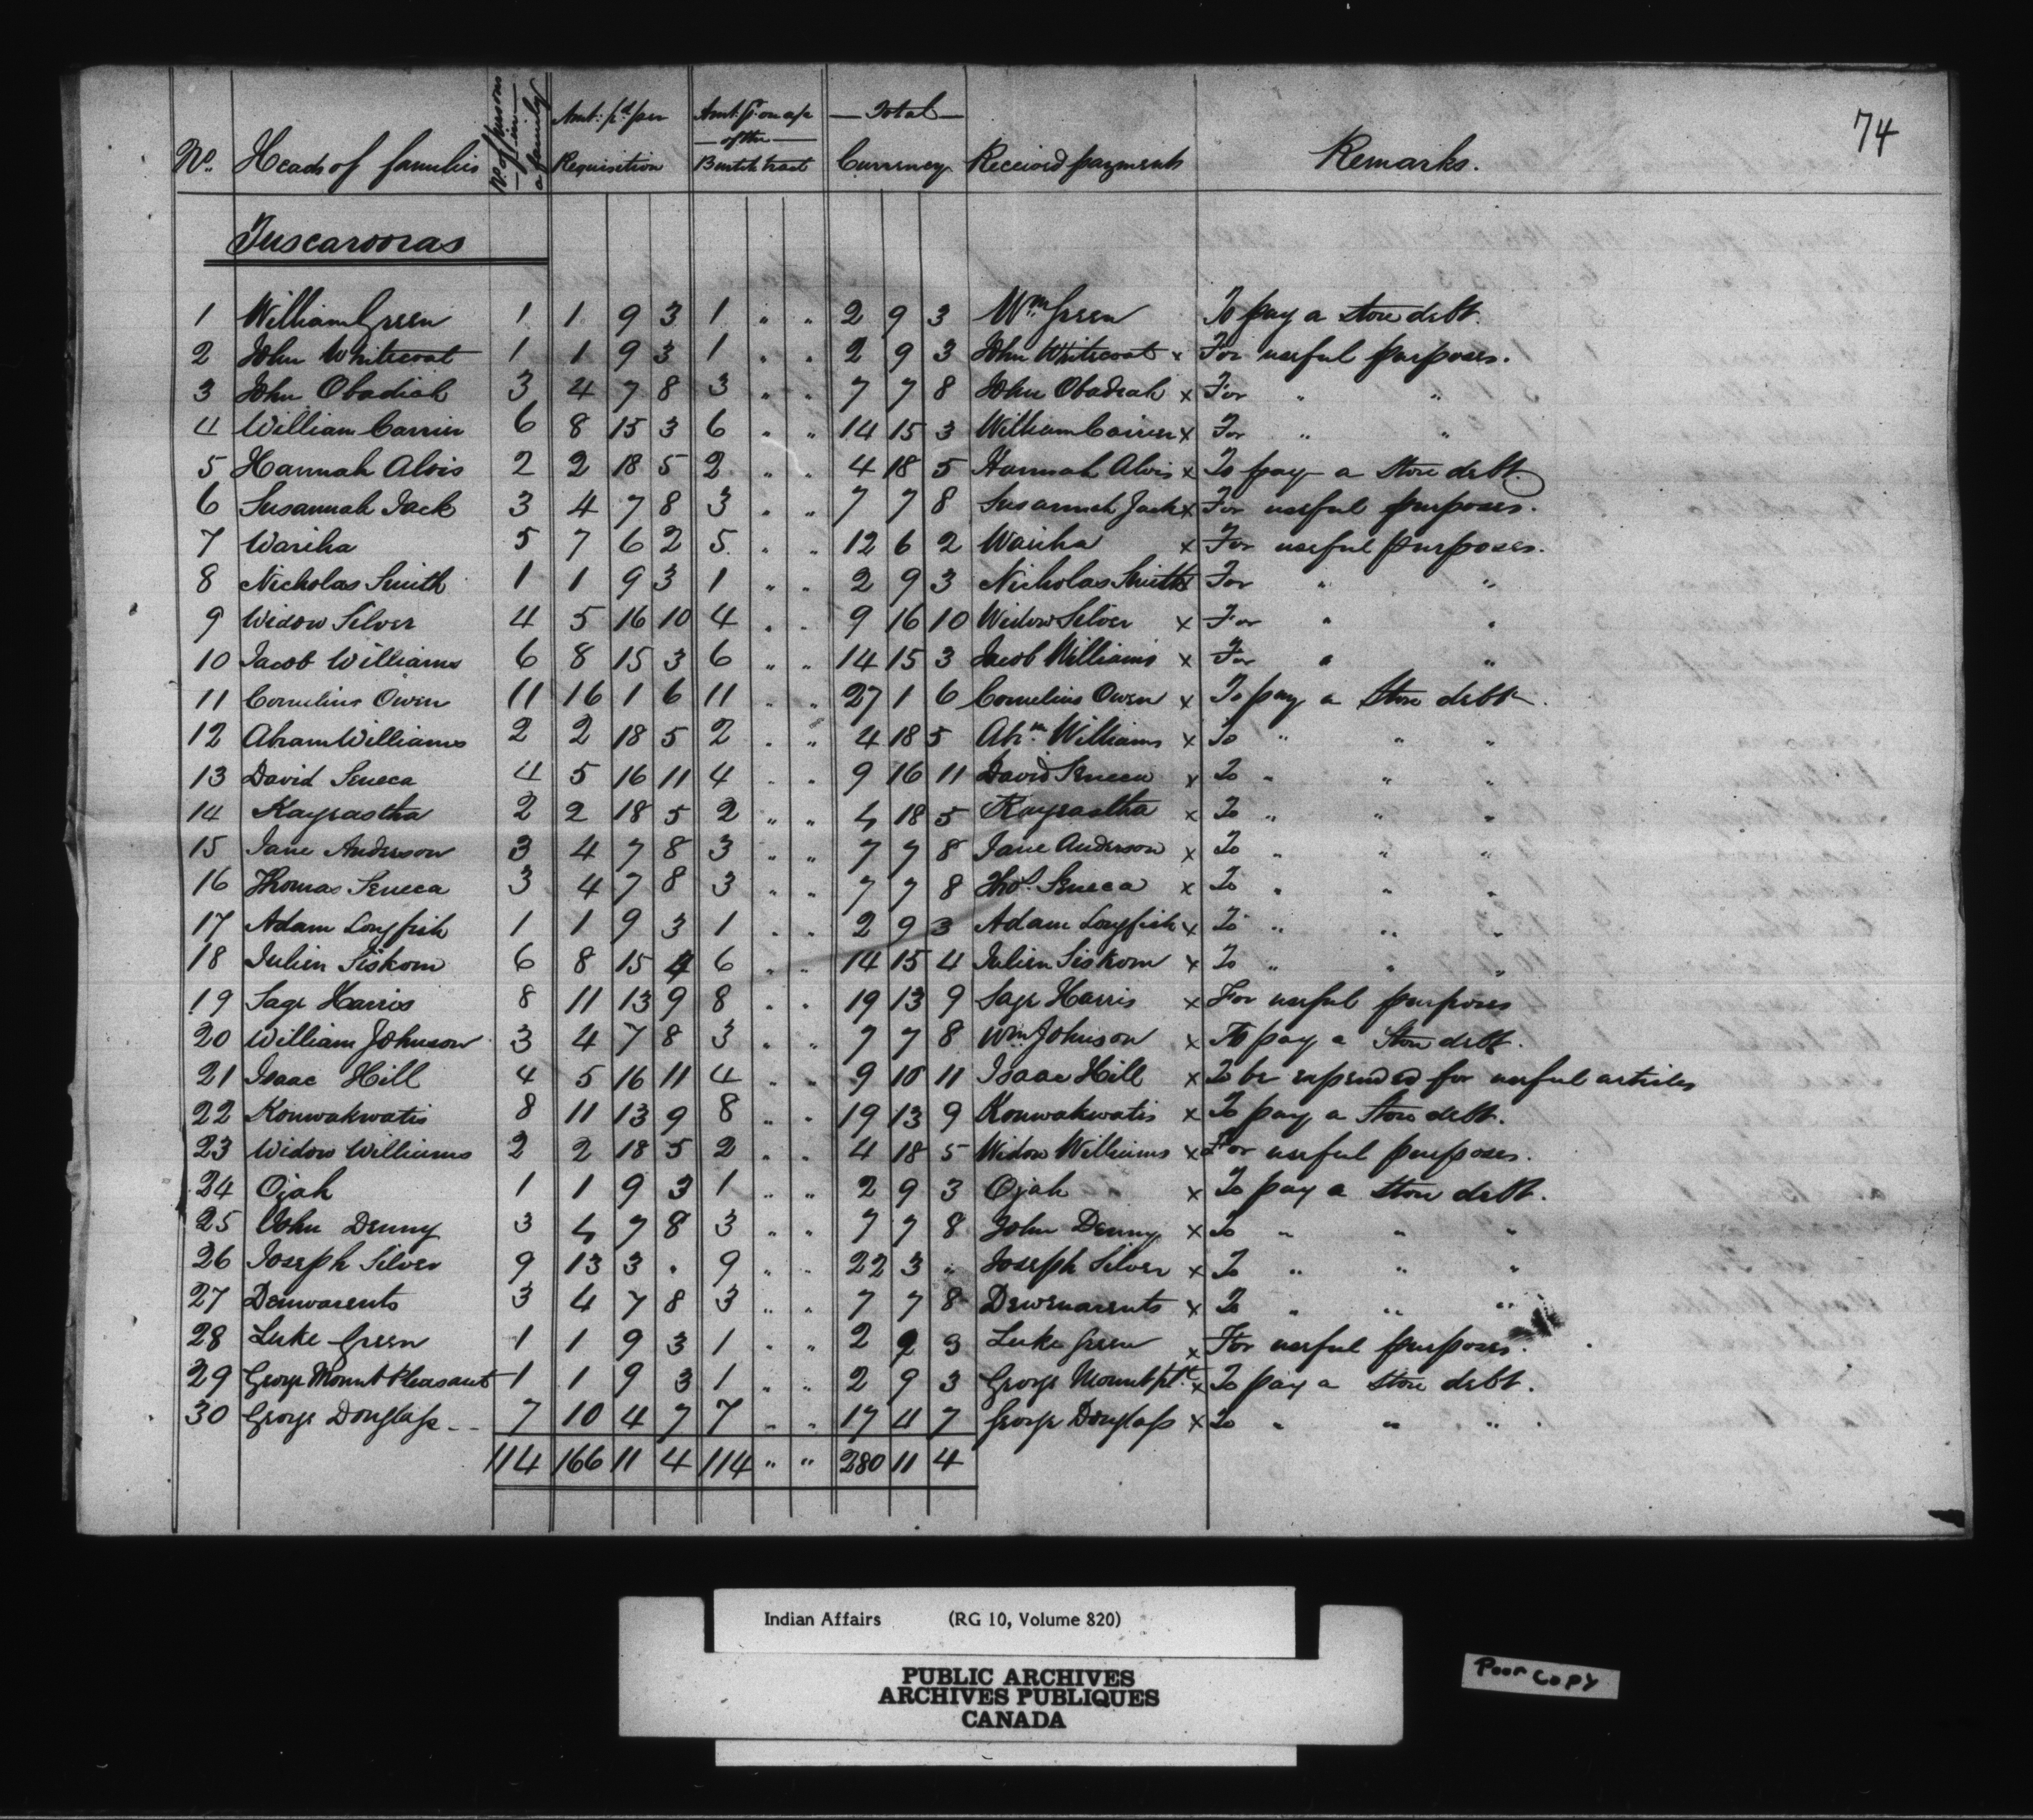 74
No. Heads of families No. of persons in a family Amt. pd per Requisition Amt. pd on a/c of the Bentick tract Total Currency Received payments Remarks.
Tuscarooras
1 William Green 1 1 9 3 1 " " 2 9 3 Wm. Green To pay a store debt.
2 John Whitecoat 1 1 9 3 1 " " 2 9 3 John Whitecoat x For useful purposes.
3 John Obadiah 3 4 7 8 3 " " 7 7 8 John Obadiah x For " "
4 William Carrier 6 8 15 3 6 " " 14 15 3 William Carrier x For " "
5 Hannah Alvis 2 2 18 5 2 " " 4 18 5 Hannah Alvis x To pay a store debt.
6 Susannah Jack 3 4 7 8 3 " " 7 7 8 Susannah Jack x For useful purposes.
7 Wariha 5 7 6 2 5 " " 12 6 2 Wariha x For useful purposes.
8 Nicholas Smith 1 1 9 3 1 " " 2 9 3 Nicholas Smith x For " "
9 Widow Silver 4 5 16 10 4 " " 9 16 10 Widow Silver x For " "
10 Jacob Williams 6 8 15 3 6 " " 14 15 3 Jacob Williams x For " "
11 Cornelius Owen 11 16 1 6 11 " " 27 1 6 Cornelius Owen x To pay a store debt.
12 Abram Williams 2 2 18 5 2 " " 4 18 5 Abm. Williams x To " " "
13 David Seneca 4 5 16 11 4 " " 9 16 11 David Seneca x To " " "
14 Kayrastha 2 2 18 5 2 " " 4 18 5 Kayrastha x To " " "
15 Jane Anderson 3 4 7 8 3 " " 7 7 8 Jane Anderson x To " " "
16 Thomas Seneca 3 4 7 8 3 " " 7 7 8 Thos. Seneca x To " " "
17 Adam Longfish 1 1 9 3 1 " " 2 9 3 Adam Longfish x To " " "
18 Julien Siskom 6 8 15 4 6 " " 14 15 4 Julien Siskom x To " " "
19 Sage Harris 8 11 13 9 8 " " 19 13 9 Sage Harris x For useful purposes
20 William Johnson 3 4 7 8 3 " " 7 7 8 Wm Johnson x To pay a store debt.
21 Isaac Hill 4 5 16 11 4 " " 9 16 11 Isaac Hill x To be expended for useful articles
22 Konwakwatis 8 11 13 9 8 " " 19 13 9 Konwakwatis x To pay a store debt.
23 Widow Williams 2 2 18 5 2 " " 4 18 5 Widow Williams x For useful purposes.
24 Ojah 1 1 9 3 1 " " 2 9 3 Ojah x To pay a store debt.
25 John Denny 3 4 7 8 3 " " 7 7 8 John Denny x To " " "
26 Joseph Silver 9 13 3 " 9 " " 22 3 " Joseph Silver x To " " "
27 Denwarents 3 4 7 8 3 " " 7 7 8 Dewenarents x To " " "
28 Luke Green 1 1 9 3 1 " " 2 9 3 Luke Green x For useful purposes.
29 George Mount Pleasant 1 1 9 3 1 " " 2 9 3 George Mount plt. x To pay a store debt.
30 George Douglass 7 10 4 7 7 " " 17 4 7 George Douglass x To " " "
114 166 11 4 114 " " 280 11 4
Indian Affairs (RG 10, Volume 820)
PUBLIC ARCHIVES
ARCHIVES PUBLIQUES
CANADA
Poor Copy